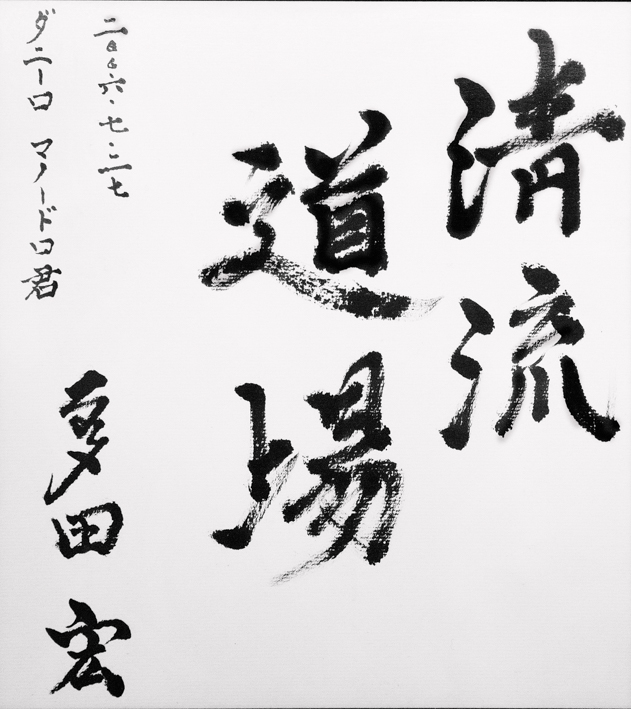 清流
道場
二〇〇六・七・二七
ダニーロ マノードロ君
多田宏